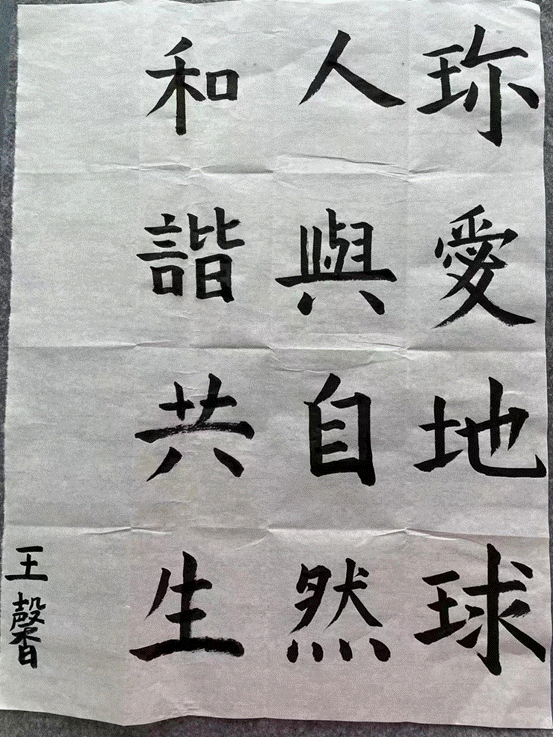 珎愛地球
人與自然
和諧共生
王馨